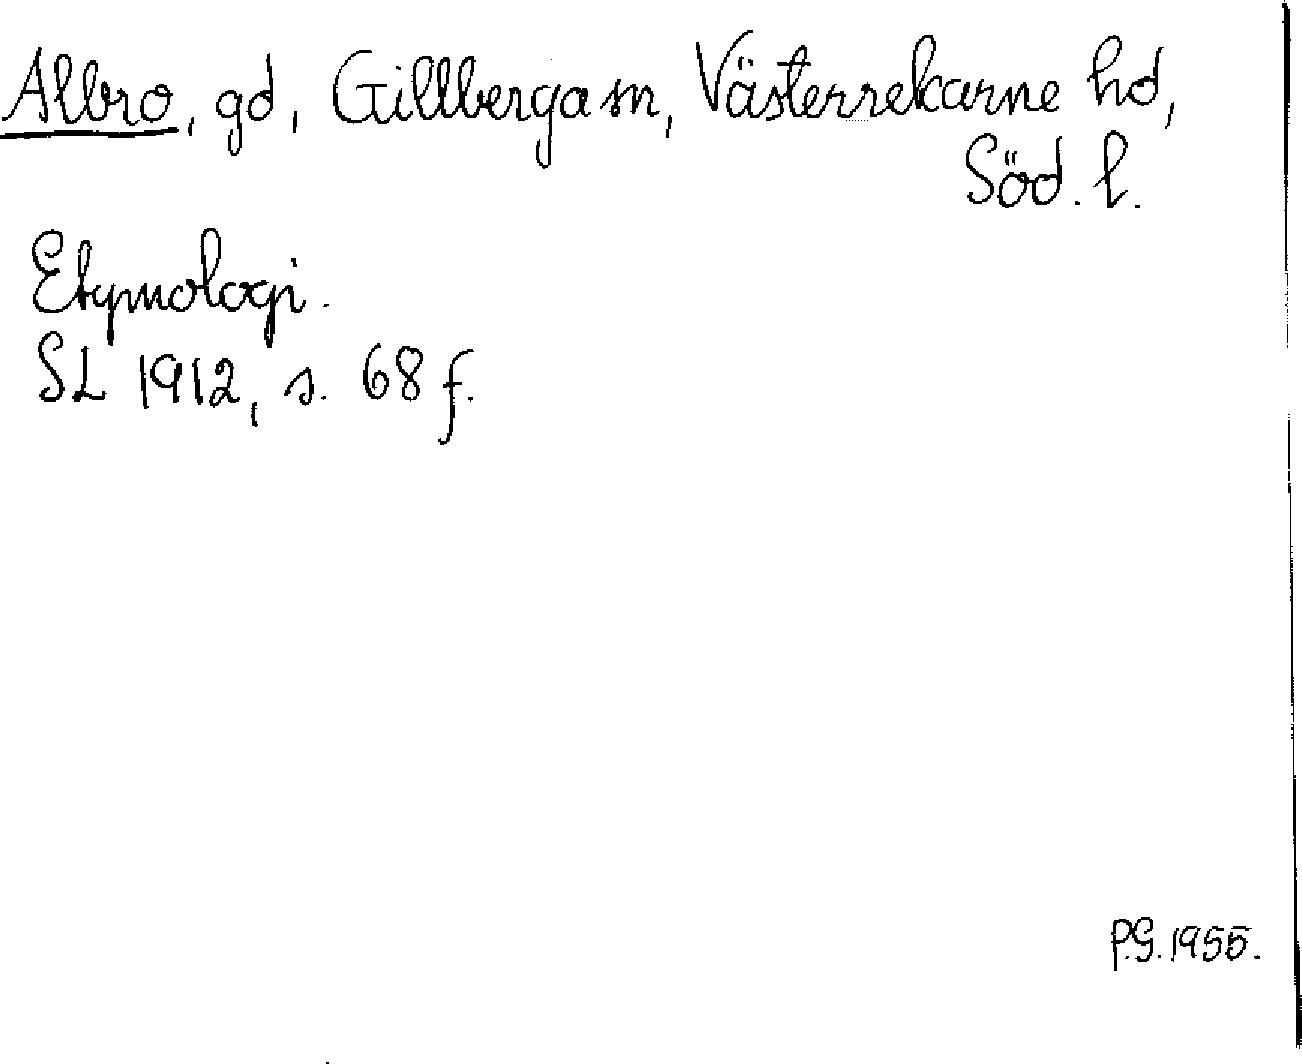 Albro, gd, Gillberga sn, Västerrekarne hd,
Söd. l.
Etymologi.
SL 1912, s. 68 f.
P.G. 1955.